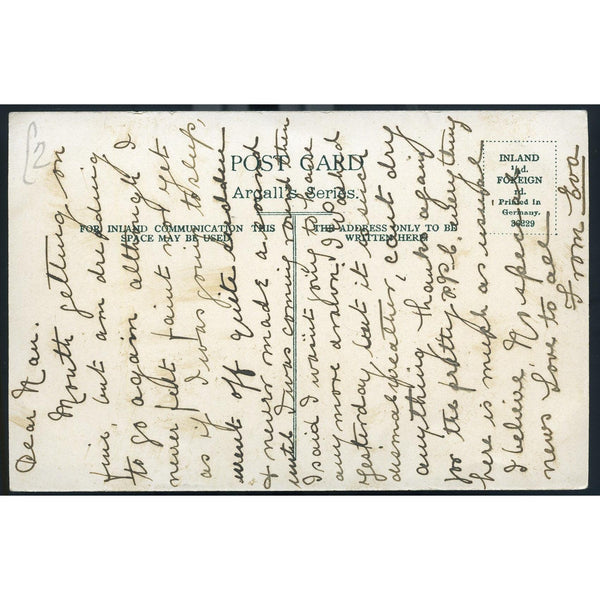 POST CARD
Argall's Series.
FOR INLAND COMMUNICATION THIS
SPACE MAY BE USED
THE ADDRESS ONLY TO BE
WRITTEN HERE.
INLAND
½d.
FOREIGN
1d.
Printed in
Germany.
39229
£2
Dear Nan.
Mouth getting on
fine, but am dreading
to go again although I
never felt faint or yet
as if I was going to sleep,
went off quite sudden
& never made a sound
until I was coming round then
I said I wasn't going to have
any more drawn, I washed
yesterday, but it is such
dismal weather, can't dry
anything thanks again
for the pretty p.p.c. everything
here is much as usual
I believe, No special
news Love to all
From Eva